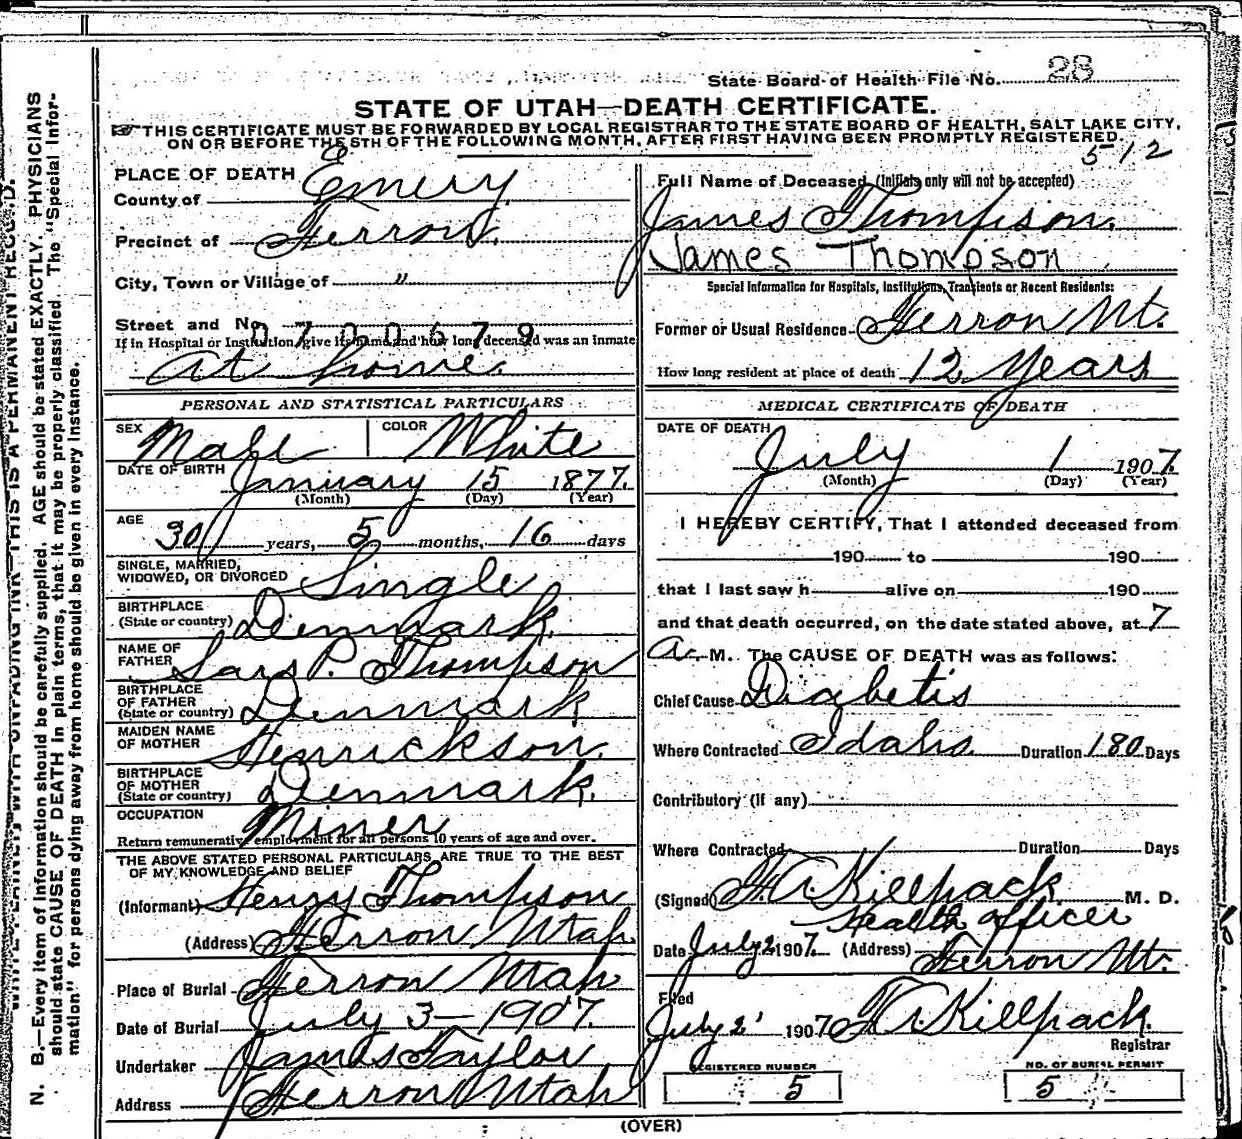 State Board of Health File No. 28
STATE OF UTAH—DEATH CERTIFICATE.
☞ THIS CERTIFICATE MUST BE FORWARDED BY LOCAL REGISTRAR TO THE STATE BOARD OF HEALTH, SALT LAKE CITY,
ON OR BEFORE THE 5TH OF THE FOLLOWING MONTH, AFTER FIRST HAVING BEEN PROMPTLY REGISTERED.
512
PLACE OF DEATH
County of Emery
Precinct of Ferron.
City, Town or Village of "
Street and No.
If in Hospital or Institution, give its name, and how long deceased was an inmate
At home.
PERSONAL AND STATISTICAL PARTICULARS
SEX Male COLOR White
DATE OF BIRTH January 15 1877.
(Month) (Day) (Year)
AGE 30 years, 5 months, 16 days
SINGLE, MARRIED,
WIDOWED, OR DIVORCED Single
BIRTHPLACE
(State or country) Denmark.
NAME OF
FATHER Lars P. Thompson
BIRTHPLACE
OF FATHER
(State or country) Denmark
MAIDEN NAME
OF MOTHER Henrickson.
BIRTHPLACE
OF MOTHER
(State or country) Denmark.
OCCUPATION Miner
Return remunerative employment for all persons 10 years of age and over.
THE ABOVE STATED PERSONAL PARTICULARS ARE TRUE TO THE BEST
OF MY KNOWLEDGE AND BELIEF
(Informant) Henry Thompson
(Address) Ferron Utah
Place of Burial Ferron Utah
Date of Burial July 3—1907.
Undertaker James Taylor
Address Ferron Utah
Full Name of Deceased (Initials only will not be accepted)
James Thompson.
James Thompson
Special Information for Hospitals, Institutions, Transients or Recent Residents:
Former or Usual Residence Ferron Ut.
How long resident at place of death 12 Years
MEDICAL CERTIFICATE OF DEATH
DATE OF DEATH
July 1 1907.
(Month) (Day) (Year)
I HEREBY CERTIFY, That I attended deceased from
190 to 190
that I last saw h alive on 190
and that death occurred, on the date stated above, at 7
A. M. The CAUSE OF DEATH was as follows:
Chief Cause Diabetis
Where Contracted Idaho. Duration 180 Days
Contributory (if any)
Where Contracted Duration Days
(Signed) Killpack M. D.
Health officer
Date July 2 1907. (Address) Ferron Ut.
Filed
July 2 1907 Killpack.
Registrar
REGISTERED NUMBER
5
NO. OF BURIAL PERMIT
5
(OVER)
N. B.—Every item of information should be carefully supplied. AGE should be stated EXACTLY. PHYSICIANS
should state CAUSE OF DEATH in plain terms, that it may be properly classified. The "Special Infor-
mation" for persons dying away from home should be given in every instance.